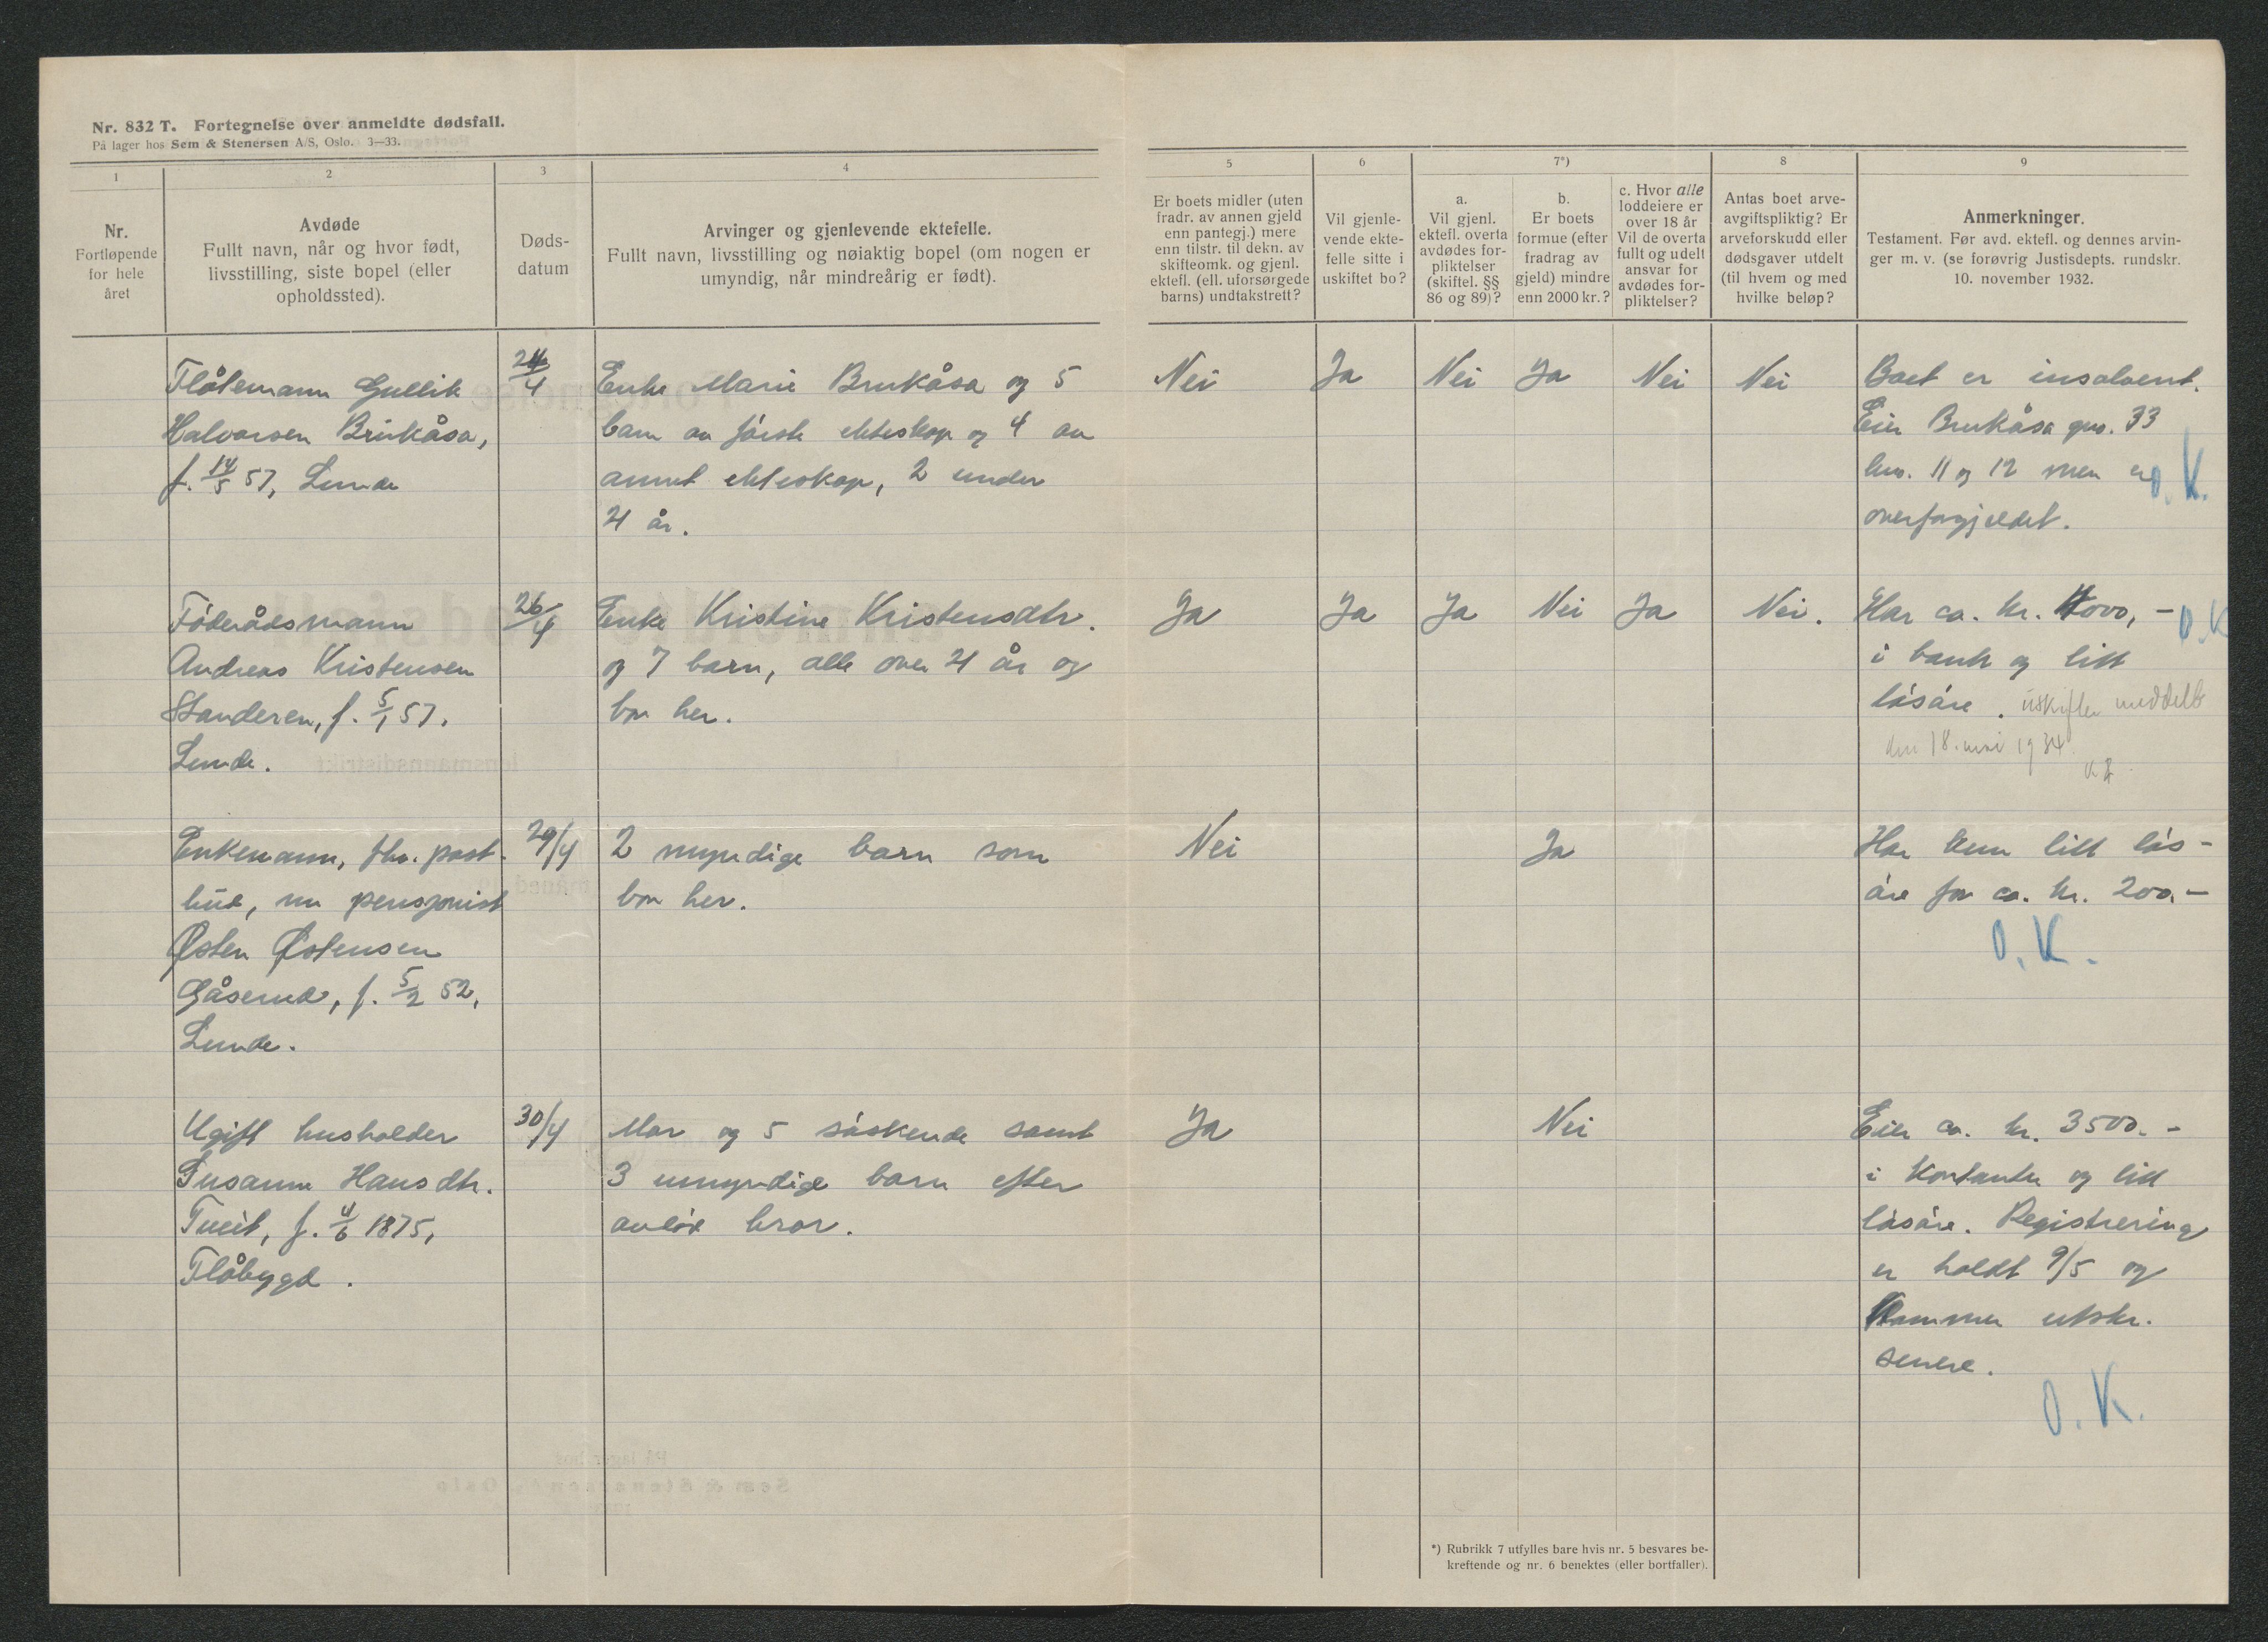 Nr. 832 T. Fortegnelse over anmeldte dødsfall.
På lager hos Sem & Stenersen A/S, Oslo. 3—33.
1
2
3
4
5
6
7*)
8
9
Nr.
Fortløpende
for hele
året
Avdøde
Fullt navn, når og hvor født,
livsstilling, siste bopel (eller
opholdssted).
Døds-
datum
Arvinger og gjenlevende ektefelle.
Fullt navn, livsstilling og nøiaktig bopel (om nogen er
umyndig, når mindreårig er født).
Er boets midler (uten
fradr. av annen gjeld
enn pantegj.) mere
enn tilstr. til dekn. av
skifteomk. og gjenl.
ektefl. (ell. uforsørgede
barns) undtakstrett?
Vil gjenle-
vende ekte-
felle sitte i
uskiftet bo?
a.
Vil gjenl.
ektefl. overta
avdødes for-
pliktelser
(skiftel. §§
86 og 89)?
b.
Er boets
formue (efter
fradrag av
gjeld) mindre
enn 2000 kr.?
c. Hvor alle
loddeiere er
over 18 år
Vil de overta
fullt og udelt
ansvar for
avdødes for-
pliktelser?
Antas boet arve-
avgiftspliktig? Er
arveforskudd eller
dødsgaver utdelt
(til hvem og med
hvilke beløp?
Anmerkninger.
Testament. Før avd. ektefl. og dennes arvin-
ger m. v. (se forøvrig Justisdepts. rundskr.
10. november 1932.
Flåtemann Gullik
Halvorsen Brukåsa,
f. 14/5 57, Lunde
24/4
Enke Marie Brukåsa og 5
barn av første ekteskap og 4 av
annet ekteskap, 2 under
21 år.
Nei
Ja
Nei
Ja
Nei
Nei
Boet er insolvent.
Eier Brukåsa gno. 33
bno. 11 og 12 men er
overforgjeldet.
O.K.
Föderådsmann
Andreas Kristensen
Standeren, f. 5/1 57.
Lunde.
26/4
Enke Kristine Kristensdtr.
og 7 barn, alle over 21 år og
bor her.
Ja
Ja
Ja
Nei
Ja
Nei.
Har ca. kr. 4000,-
i bank og litt
lösöre. uskifte meddelt
den 18. mai 1934
O.K
Enkemann, fhv. post-
bud, nu pensjonist
Østen Østensen
Gåserud, f. 5/2 52,
Lunde.
29/4
2 myndige barn som
bor her.
Nei
Ja
Har kun litt lös-
öre for ca. kr. 200,-
O.K.
Ugift husholder
Susanne Hansdtr.
Tveit, f. 4/6 1875,
Flåbygd.
30/4
Mor og 5 söskende samt
3 umyndige barn efter
avdöd bror.
Ja
Nei
Eier ca. kr. 3500.-
i kontanter og litt
lösöre. Registrering
er holdt 9/5 og
kommer utskr.
senere.
O.K.
*) Rubrikk 7 utfylles bare hvis nr. 5 besvares be-
kreftende og nr. 6 benektes (eller bortfaller).